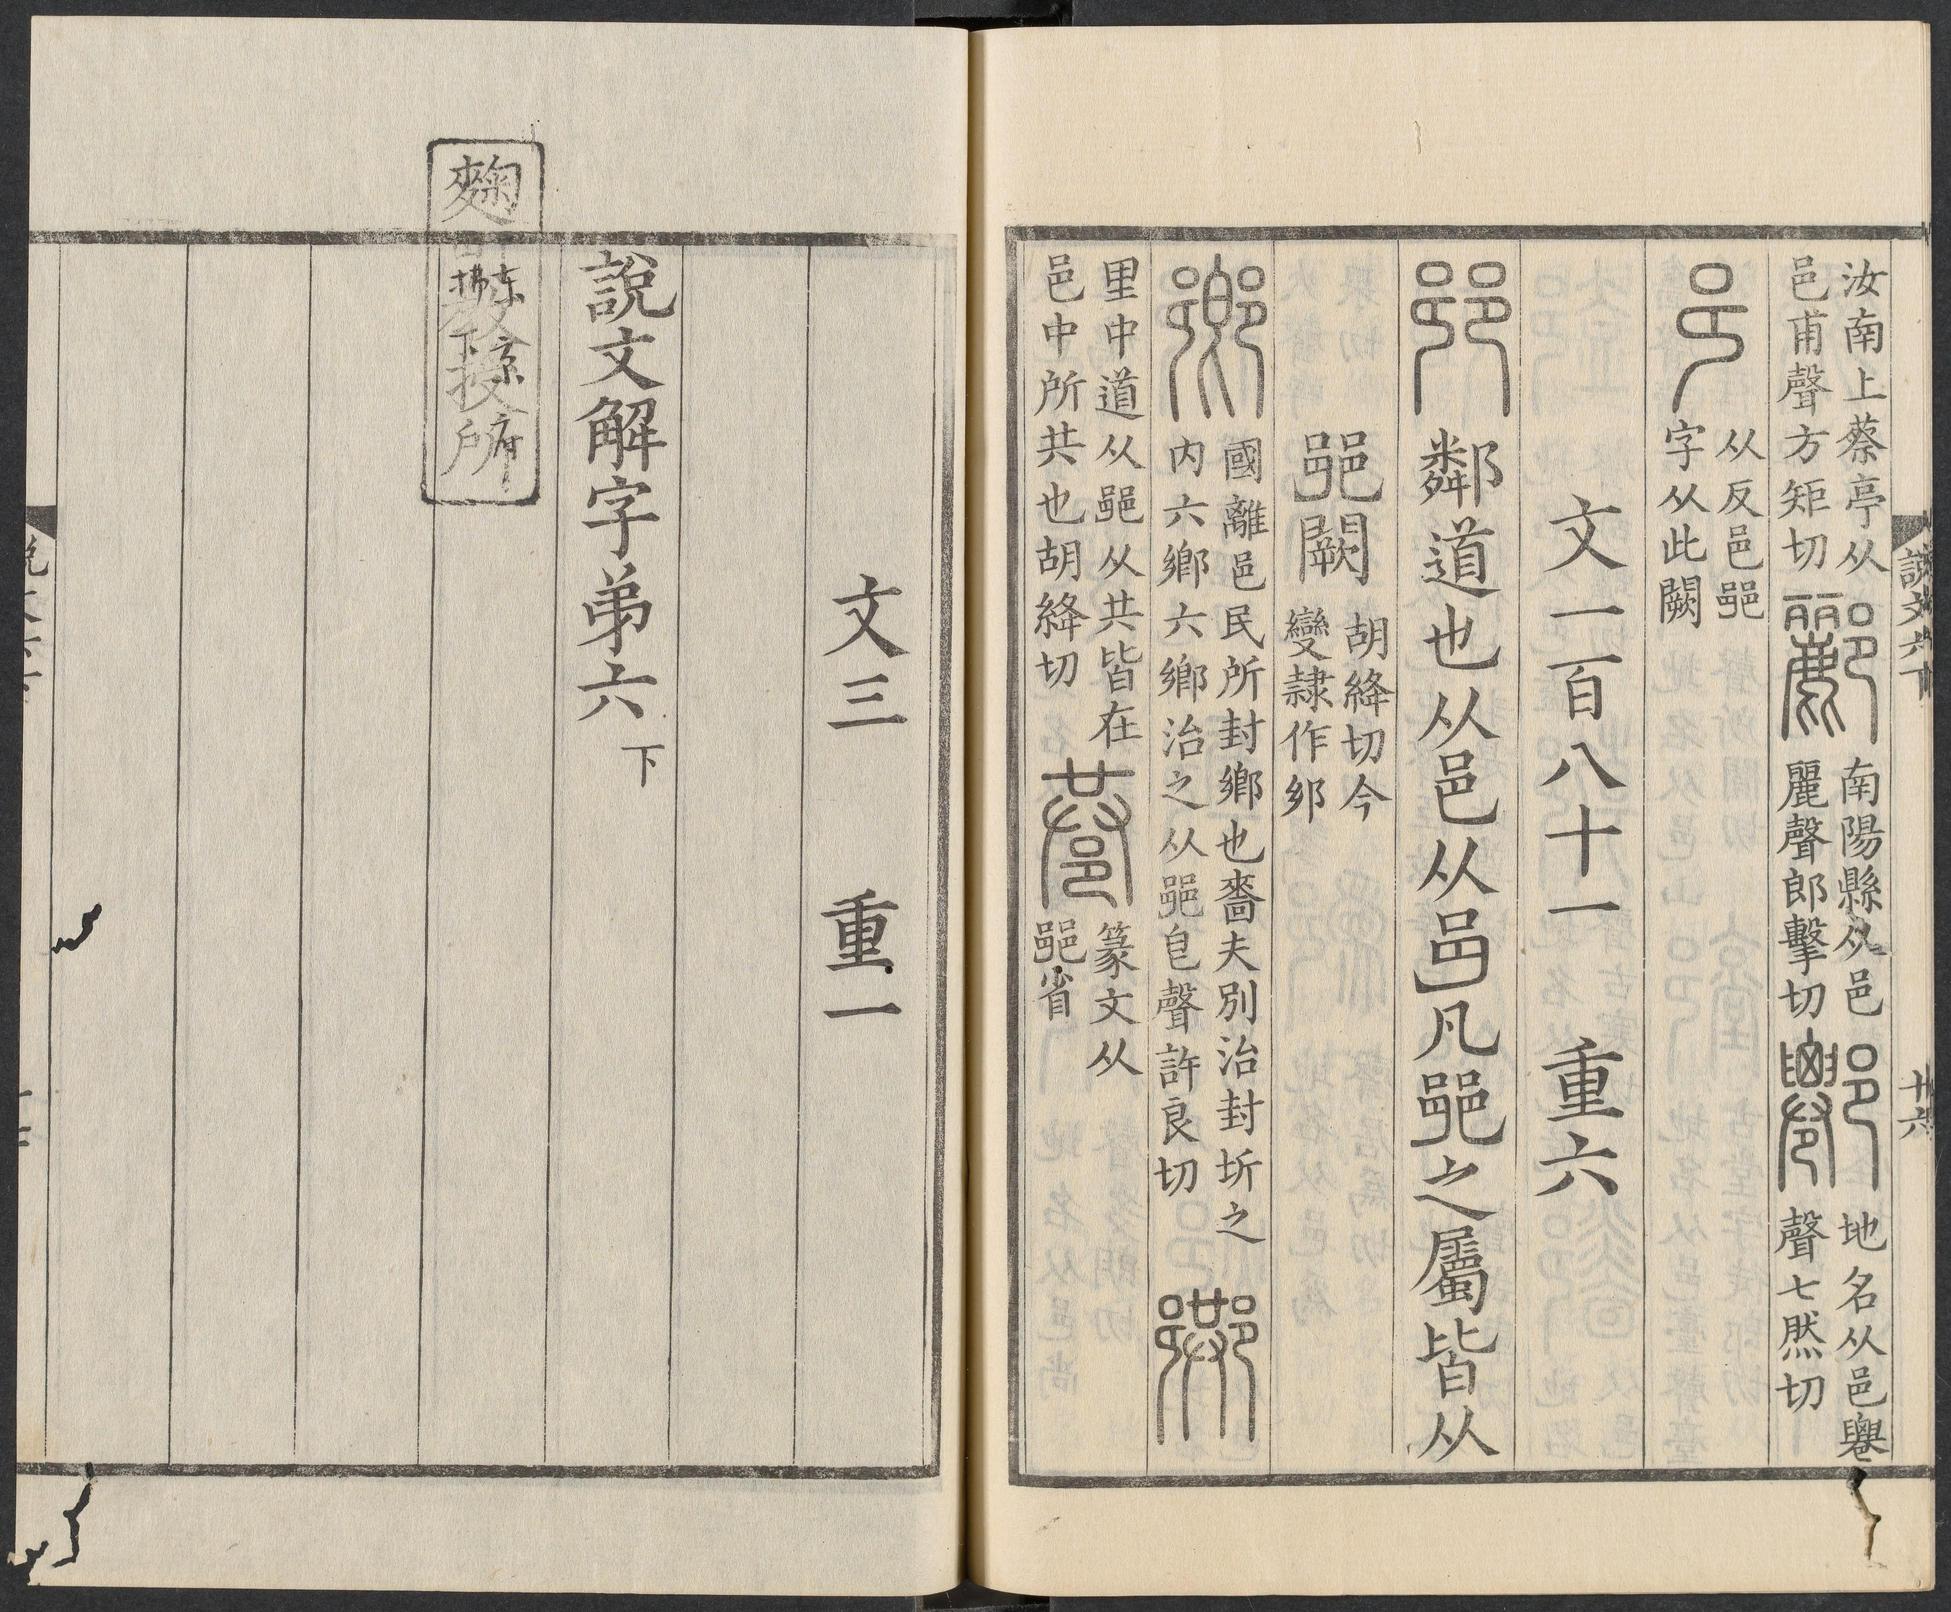 說文六下 十六
汝南上蔡亭从
邑甫聲方矩切
酈
南陽縣从邑
麗聲郎擊切
地名从邑䙴
聲七然切
𨙨
从反邑𨛜
字从此闕
文一百八十一 重六
𨛜 鄰道也从邑从𨙨凡𨛜之屬皆从
𨛜闕
胡絳切今
變隷作𨙵
鄉
國離邑民所封鄉也嗇夫別治封圻之
内六鄉六鄉治之从𨛜皀聲許良切
𨞠
里中道从𨛜从共皆在
邑中所共也胡絳切
巷
篆文从
𨛜省
文三 重一
說文解字弟六 下